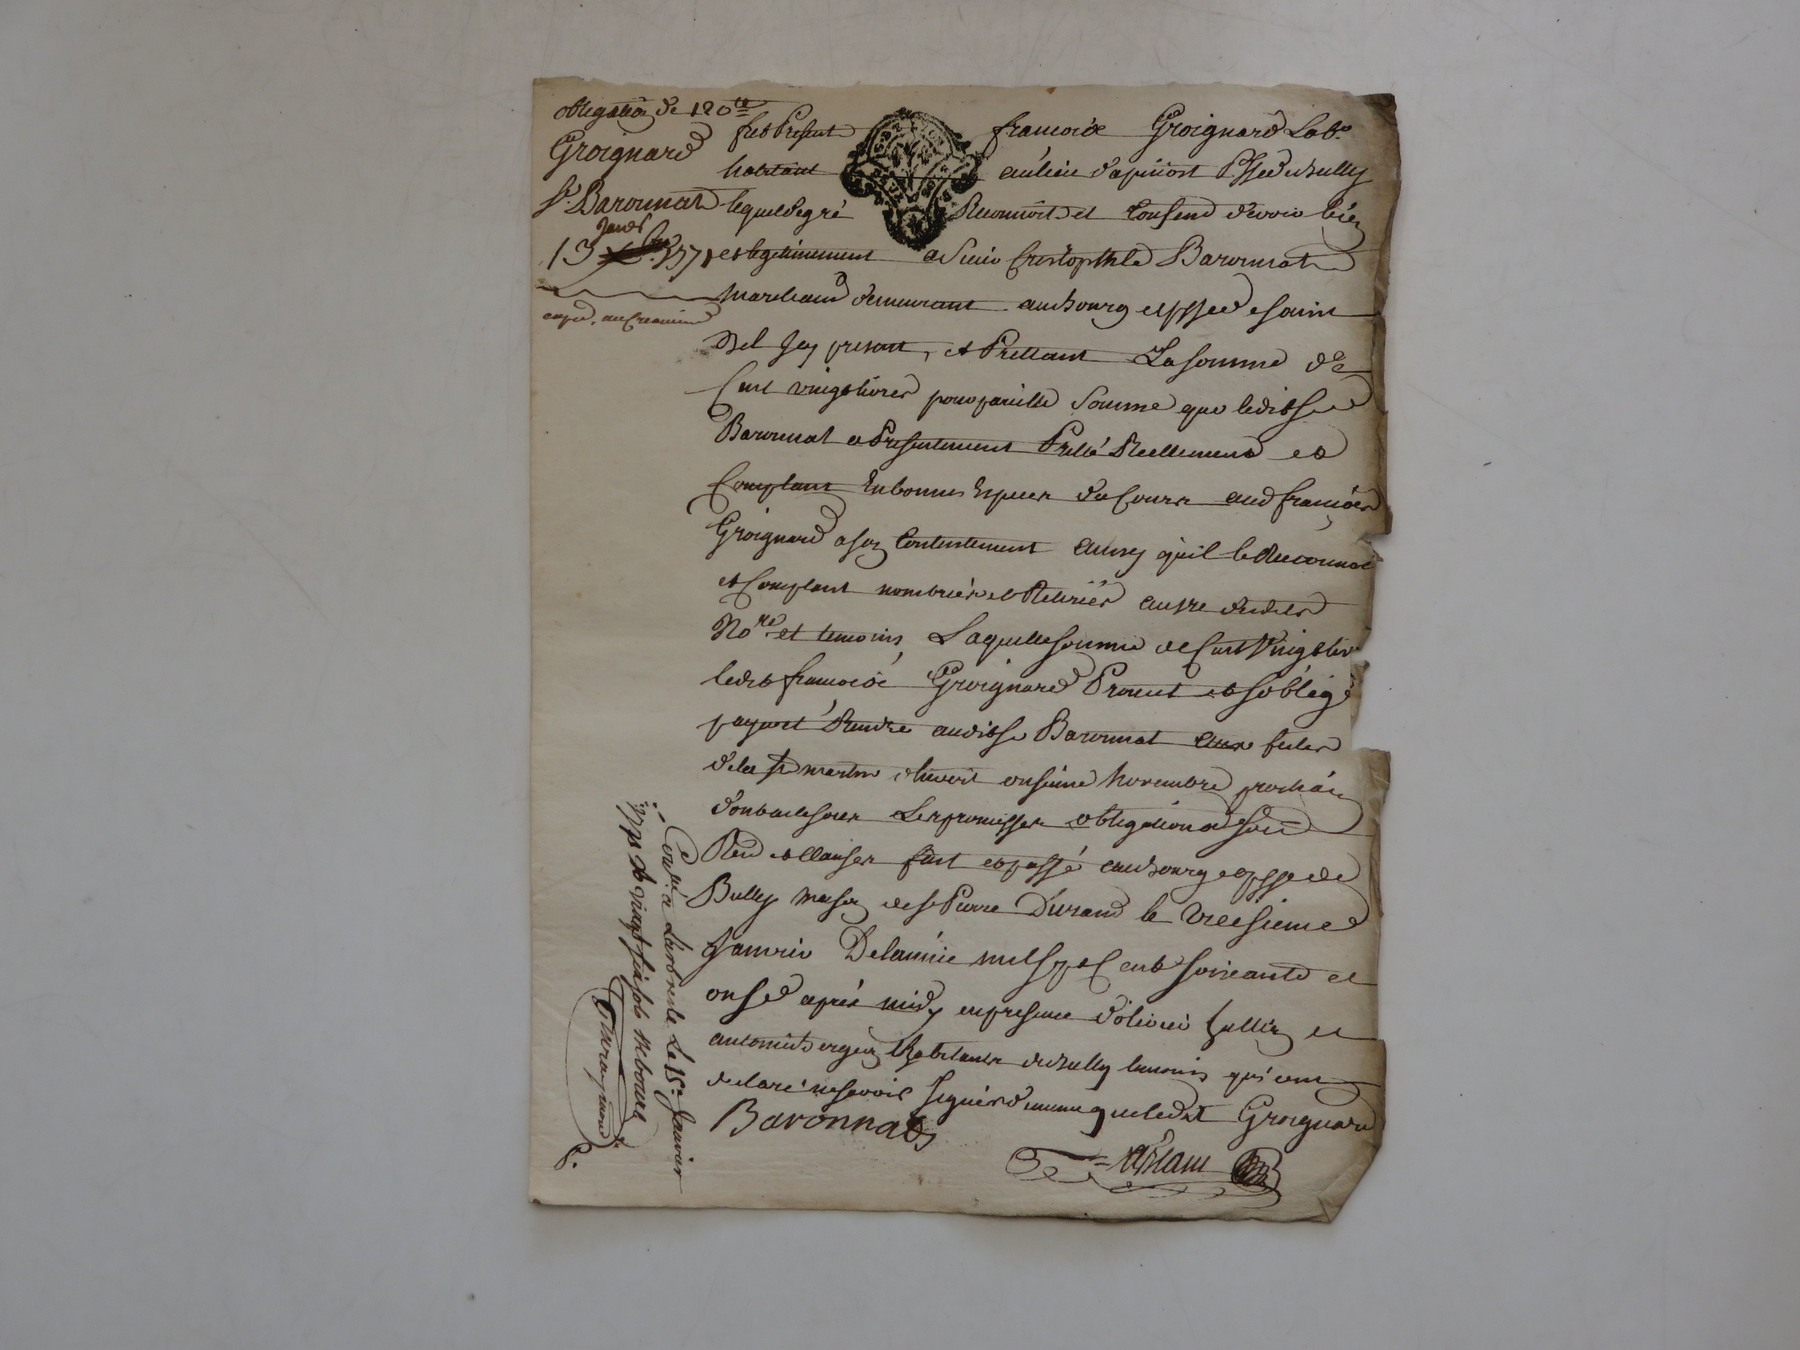 obligation de 120 ₶
Groignard
Sr. Baronnat
13 Janvr 1771
expd. au Creancier
fut Present francoise Groignard Labr.
habitant au lieu d'apinost Psse de bully
lequel de gré Reconnoit et Confend devoir bien
et legitimement a Sieur Cristophle Baronnat
Marchand demeurant au bourg et psse de saint
Bel Jcy present, et Prettant La somme de
Cent vingt livres pour pareille Somme que ledit Sr
Baronnat a Presentement Pretté Reellement et
Comptant En bonnes Especes du Cours aud francois
Groignard a son Contentement ainsy qu'il le Reconnoit
et Comptant nombrées et Retirées au vue dudit
Nore et temoins, Laquelle somme de Cent Vingt liv
ledit francoise Groignard Promet et s'oblige
payer et Rendre audit Sr Baronnat aux festes
de la St martin d'hivert onsieme Novembre prochain
dont acte soubs Les promesses obligation de soud
Rend et Clauses fait et passé au bourg et psse de
Bully maison de Sr Pierre Durand le treisieme
Janvier De l'année mil sept Cent soixante et
onse après midy en presence d'olivier et
antoine habitants de bully temoins qui ont
declaré ne sçavoir Signer de meme que ledit Groignard
Baronnat
Conlé. a Larbresle Le 15e. Janvier
1771 Rt vingt six sols Rebours